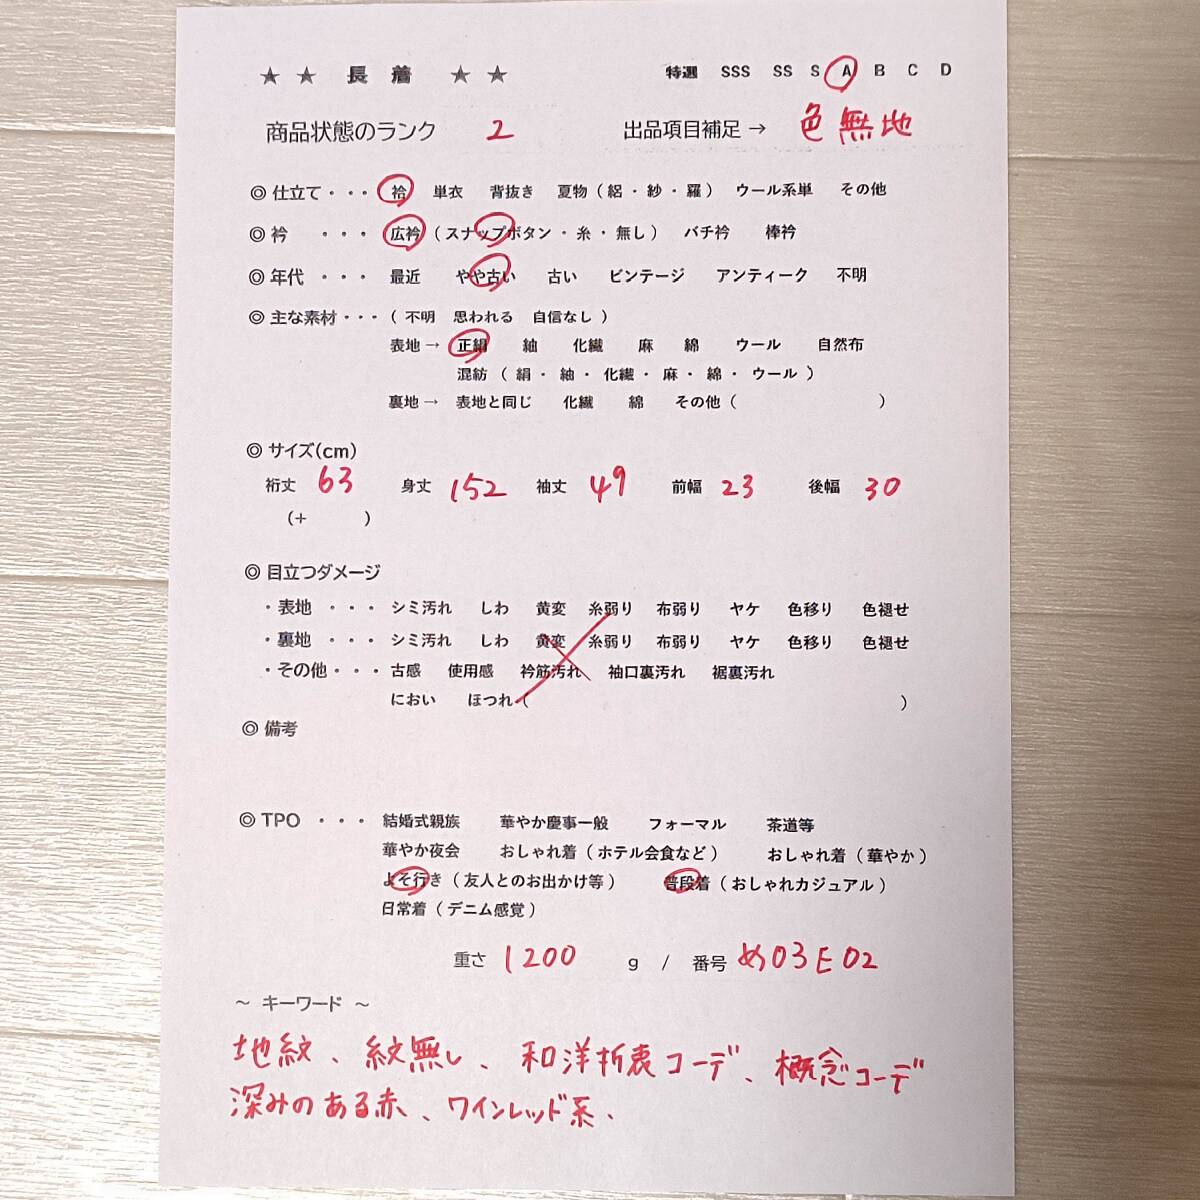 ★ ★ 長 着 ★ ★ 特選 SSS SS S A B C D
商品状態のランク 2 出品項目補足 → 色無地
◎ 仕立て・・・ 袷 単衣 背抜き 夏物（ 絽 ・ 紗 ・ 羅 ） ウール系単 その他
◎ 衿 ・・・ 広衿（ スナップボタン ・ 糸 ・ 無し ） バチ衿 棒衿
◎ 年代 ・・・ 最近 やや古い 古い ビンテージ アンティーク 不明
◎ 主な素材・・・（ 不明 思われる 自信なし ）
表地 → 正絹 紬 化繊 麻 綿 ウール 自然布
混紡 （ 絹 ・ 紬 ・ 化繊 ・ 麻 ・ 綿 ・ ウール ）
裏地 → 表地と同じ 化繊 綿 その他（ ）
◎ サイズ(cm)
裄丈 63 身丈 152 袖丈 49 前幅 23 後幅 30
（+ ）
◎ 目立つダメージ
・表地 ・・・ シミ汚れ しわ 黄変 糸弱り 布弱り ヤケ 色移り 色褪せ
・裏地 ・・・ シミ汚れ しわ 黄変 糸弱り 布弱り ヤケ 色移り 色褪せ
・その他・・・ 古感 使用感 衿筋汚れ 袖口裏汚れ 裾裏汚れ
におい ほつれ（ ）
◎ 備考
◎ TPO ・・・ 結婚式親族 華やか慶事一般 フォーマル 茶道等
華やか夜会 おしゃれ着（ ホテル会食など ） おしゃれ着（ 華やか ）
よそ行き（ 友人とのお出かけ等 ） 普段着（ おしゃれカジュアル ）
日常着（ デニム感覚 ）
重さ 1200 g / 番号 め03E02
～ キーワード ～
地紋、紋無し、和洋折衷コーデ、概念コーデ
深みのある赤、ワインレッド系、